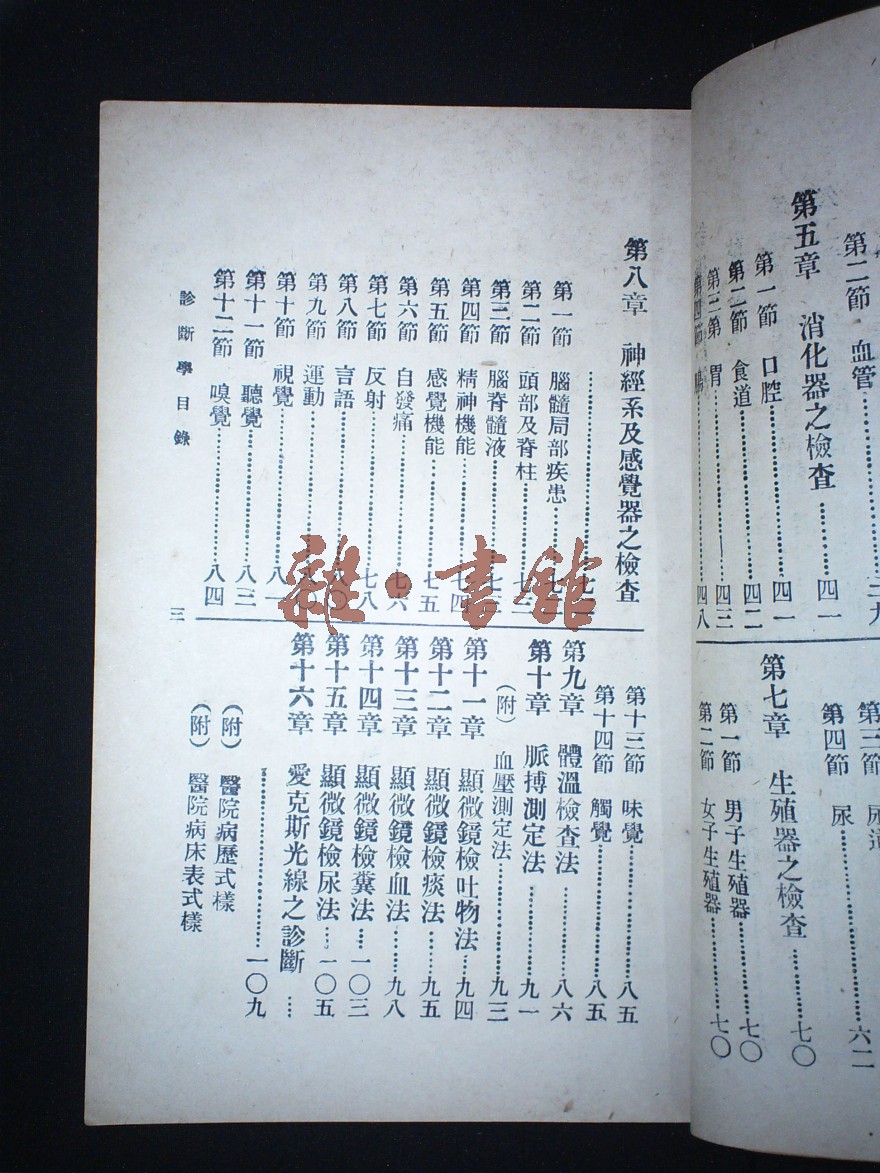 第二節 血管
第五章 消化器之檢查……四一
第一節 口腔……四一
第二節 食道……四二
第三第 胃……四三
第四節……四八
第三節 尿道
第四節 尿……六二
第七章 生殖器之檢查……七〇
第一節 男子生殖器……七〇
第二節 女子生殖器……七〇
第八章 神經系及感覺器之檢查
第一節 腦髓局部疾患
第二節 頭部及脊柱
第三節 腦脊髓液
第四節 精神機能……七四
第五節 感覺機能……七五
第六節 自發痛……七六
第七節 反射……七八
第八節 言語……八〇
第九節 運動……八〇
第十節 視覺……八一
第十一節 聽覺……八三
第十二節 嗅覺……八四
第十三節 味覺……八五
第十四節 觸覺……八五
第九章 體溫檢查法……八六
第十章 脈搏測定法……九一
(附) 血壓測定法……九三
第十一章 顯微鏡檢吐物法……九四
第十二章 顯微鏡檢痰法……九五
第十三章 顯微鏡檢血法……九八
第十四章 顯微鏡檢糞法……一〇三
第十五章 顯微鏡檢尿法……一〇五
第十六章 愛克斯光線之診斷…
……一〇九
(附) 醫院病歷式樣
(附) 醫院病床表式樣
診斷學目錄
三
雜·書館